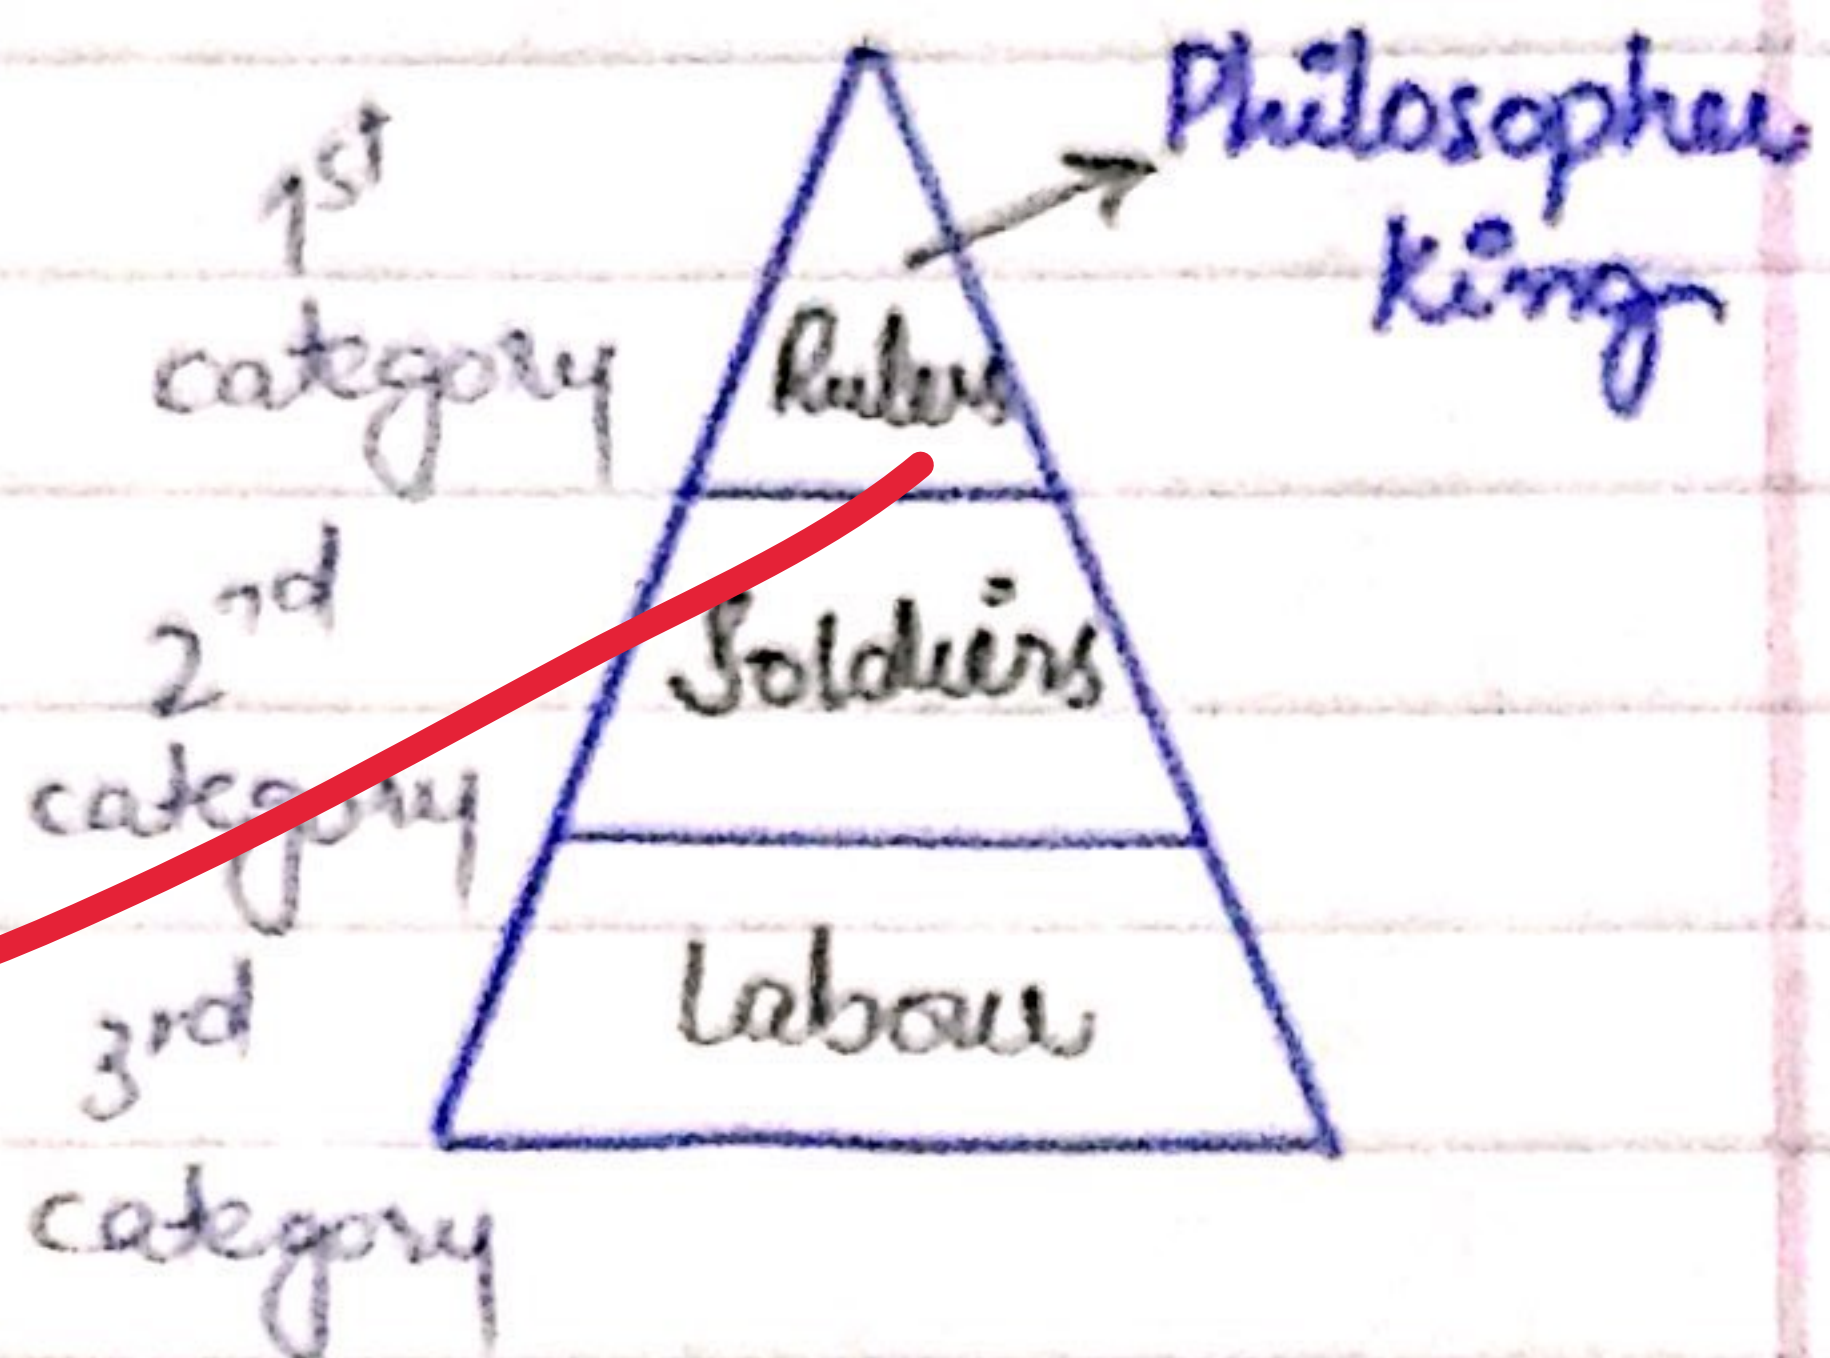 1st
category
Rulers
Philosopher
King
2nd
category
Soldiers
3rd
category
Labour